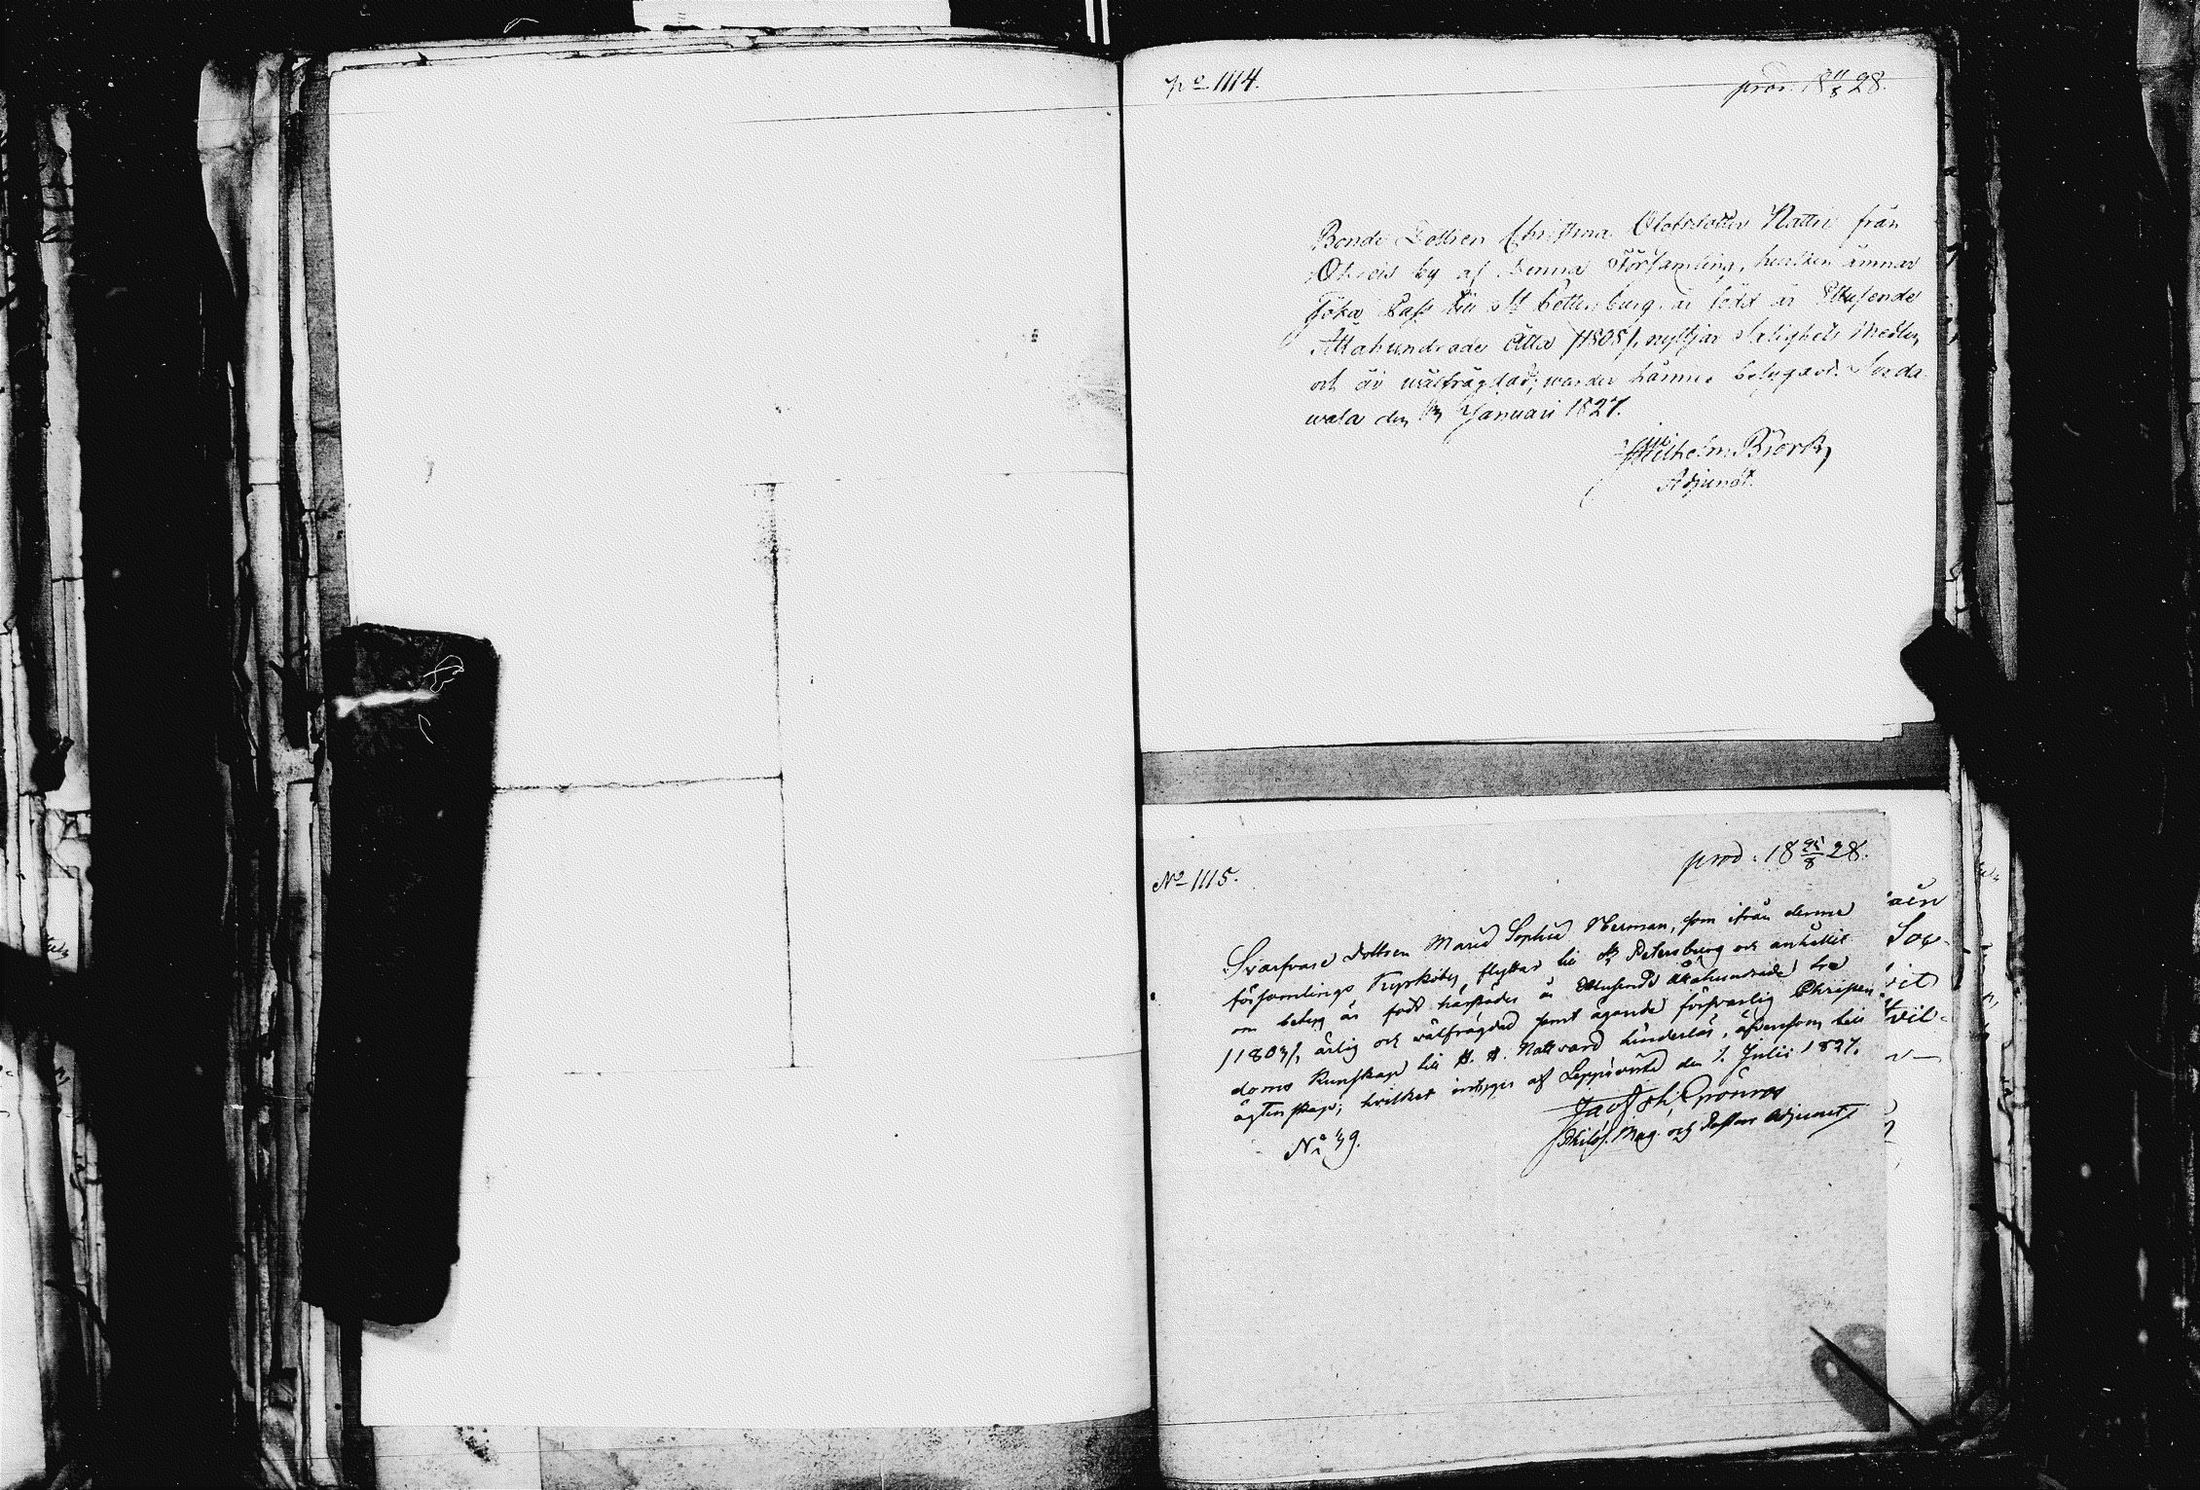 No 1114.
prod. 18 11/8 28.
Bonde Dottren Christina Olofsdotter Natter från
by af denna Församling, hvilken ämnar
söka Pass till St Pettersburg, är född år Ettusende
Åttahundrade åtta /1808/, nyttjar Salighets Medlen
och är wälfrägdad; warder hänne betygadt. Sorda-
wala den Januari 1827.
Wilhelm Biork,
Adjunct.
No 1115.
prod. 18 25/8 28.
Svarfvare dottren Maria Sophia Herman, som ifrån denna
församlings Kyrkoby flyttar till St Petersburg och anhållit
om betyg är född härstädes år Ettusende Åttahundrade tre
/1803/, ärlig och wälfrägdad samt ägande försvarlig Christen-
doms Kunskap till H. H. Nattvard hinderlös, äfvensom till
ägtenskap; hvilket intygas af Leppävirta den 7. Julii 1827.
Jac. Joh.
Philos. Mag. och Pastors Adjunct
No 49.